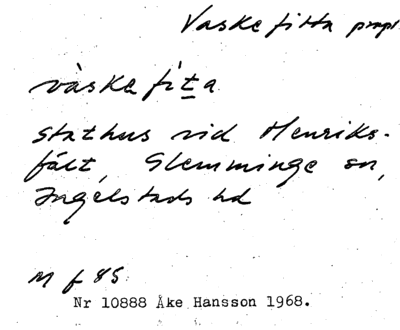 Vaskefitta propr
vàske fìt̲a
stathus vid Henriks-
fält, Glemminge sn,
Ingelstads hd
M f 85
Nr 10888 Åke Hansson 1968.